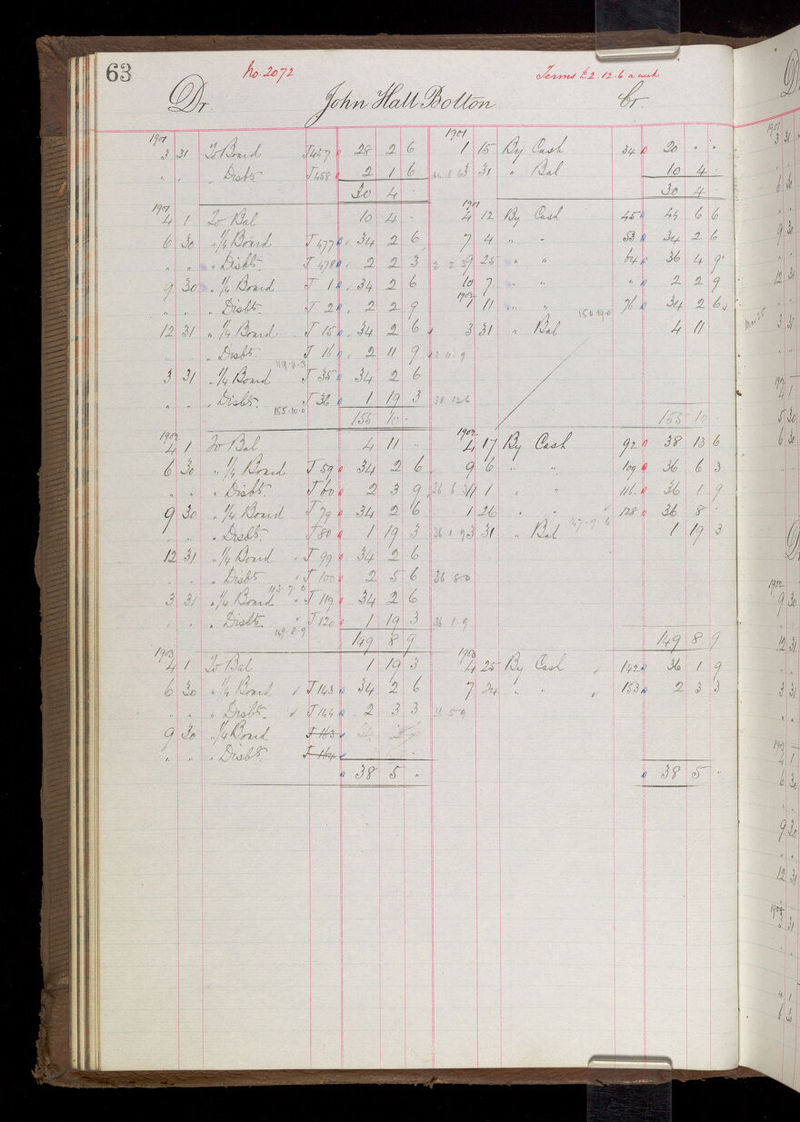 63 No. 2072 Terms £2.12.6 a week
Dr. John Hall Bolton Cr
1901 1901
3 31 To Board J457 28 2 6 1 15 By Cash 34 20 " "
" " " Disbts J458 2 1 6 3 31 " Bal 10 4 -
30 4 - 30 4 -
1901 1901
4 1 To Bal 10 4 - 4 12 By Cash 45 44 6 6
6 30 " 1/4 Board J477 34 2 6 7 4 " " 53 34 2 6
" " " Disbts J478 2 2 3 9 25 " " 64 36 4 9
9 30 " 1/4 Board J 1 34 2 6 10 7 " " " 2 2 9
1902
" " " Disbts J 2 2 2 9 1 11 " " 76 34 2 6
150.19.0
12 31 " 1/4 Board J 15 34 2 6 3 31 " Bal 4 11
" " " Disbts J 16 2 11 9
119.8.3
3 31 " 1/4 Board J 35 34 2 6
" " " Disbts J 36 1 19 3 38 12 6
155.10.0
155 10 - 155 10 -
1902 1902
4 1 To Bal 4 11 - 4 17 By Cash 92 38 13 6
6 30 " 1/4 Board J 59 34 2 6 9 6 " " 109 36 6 3
" " " Disbts J 60 2 3 9 36 6 3 11 1 " " 116 36 1 9
9 30 " 1/4 Board J 79 34 2 6 1 26 " " 128 36 8 -
" " " Disbts J 80 1 19 3 36 1 9 3 31 " Bal 147.9.6 1 19 3
12 31 " 1/4 Board J 99 34 2 6
" " " Disbts J 100 2 5 6 36 8 0
113.7.0
3 31 " 1/4 Board J 119 34 2 6
" " " Disbts J 120 1 19 3 36 1 9
149.8.9
149 8 9 149 8 9
1903 1903
4 1 To Bal 1 19 3 4 25 By Cash 142 36 1 9
6 30 " 1/4 Board J 143 34 2 6 7 24 " " 153 2 3 3
" " " Disbts J 144 2 3 3
9 30 " 1/4 Board J 163
" " " Disbts J 164
38 5 " 38 5 "